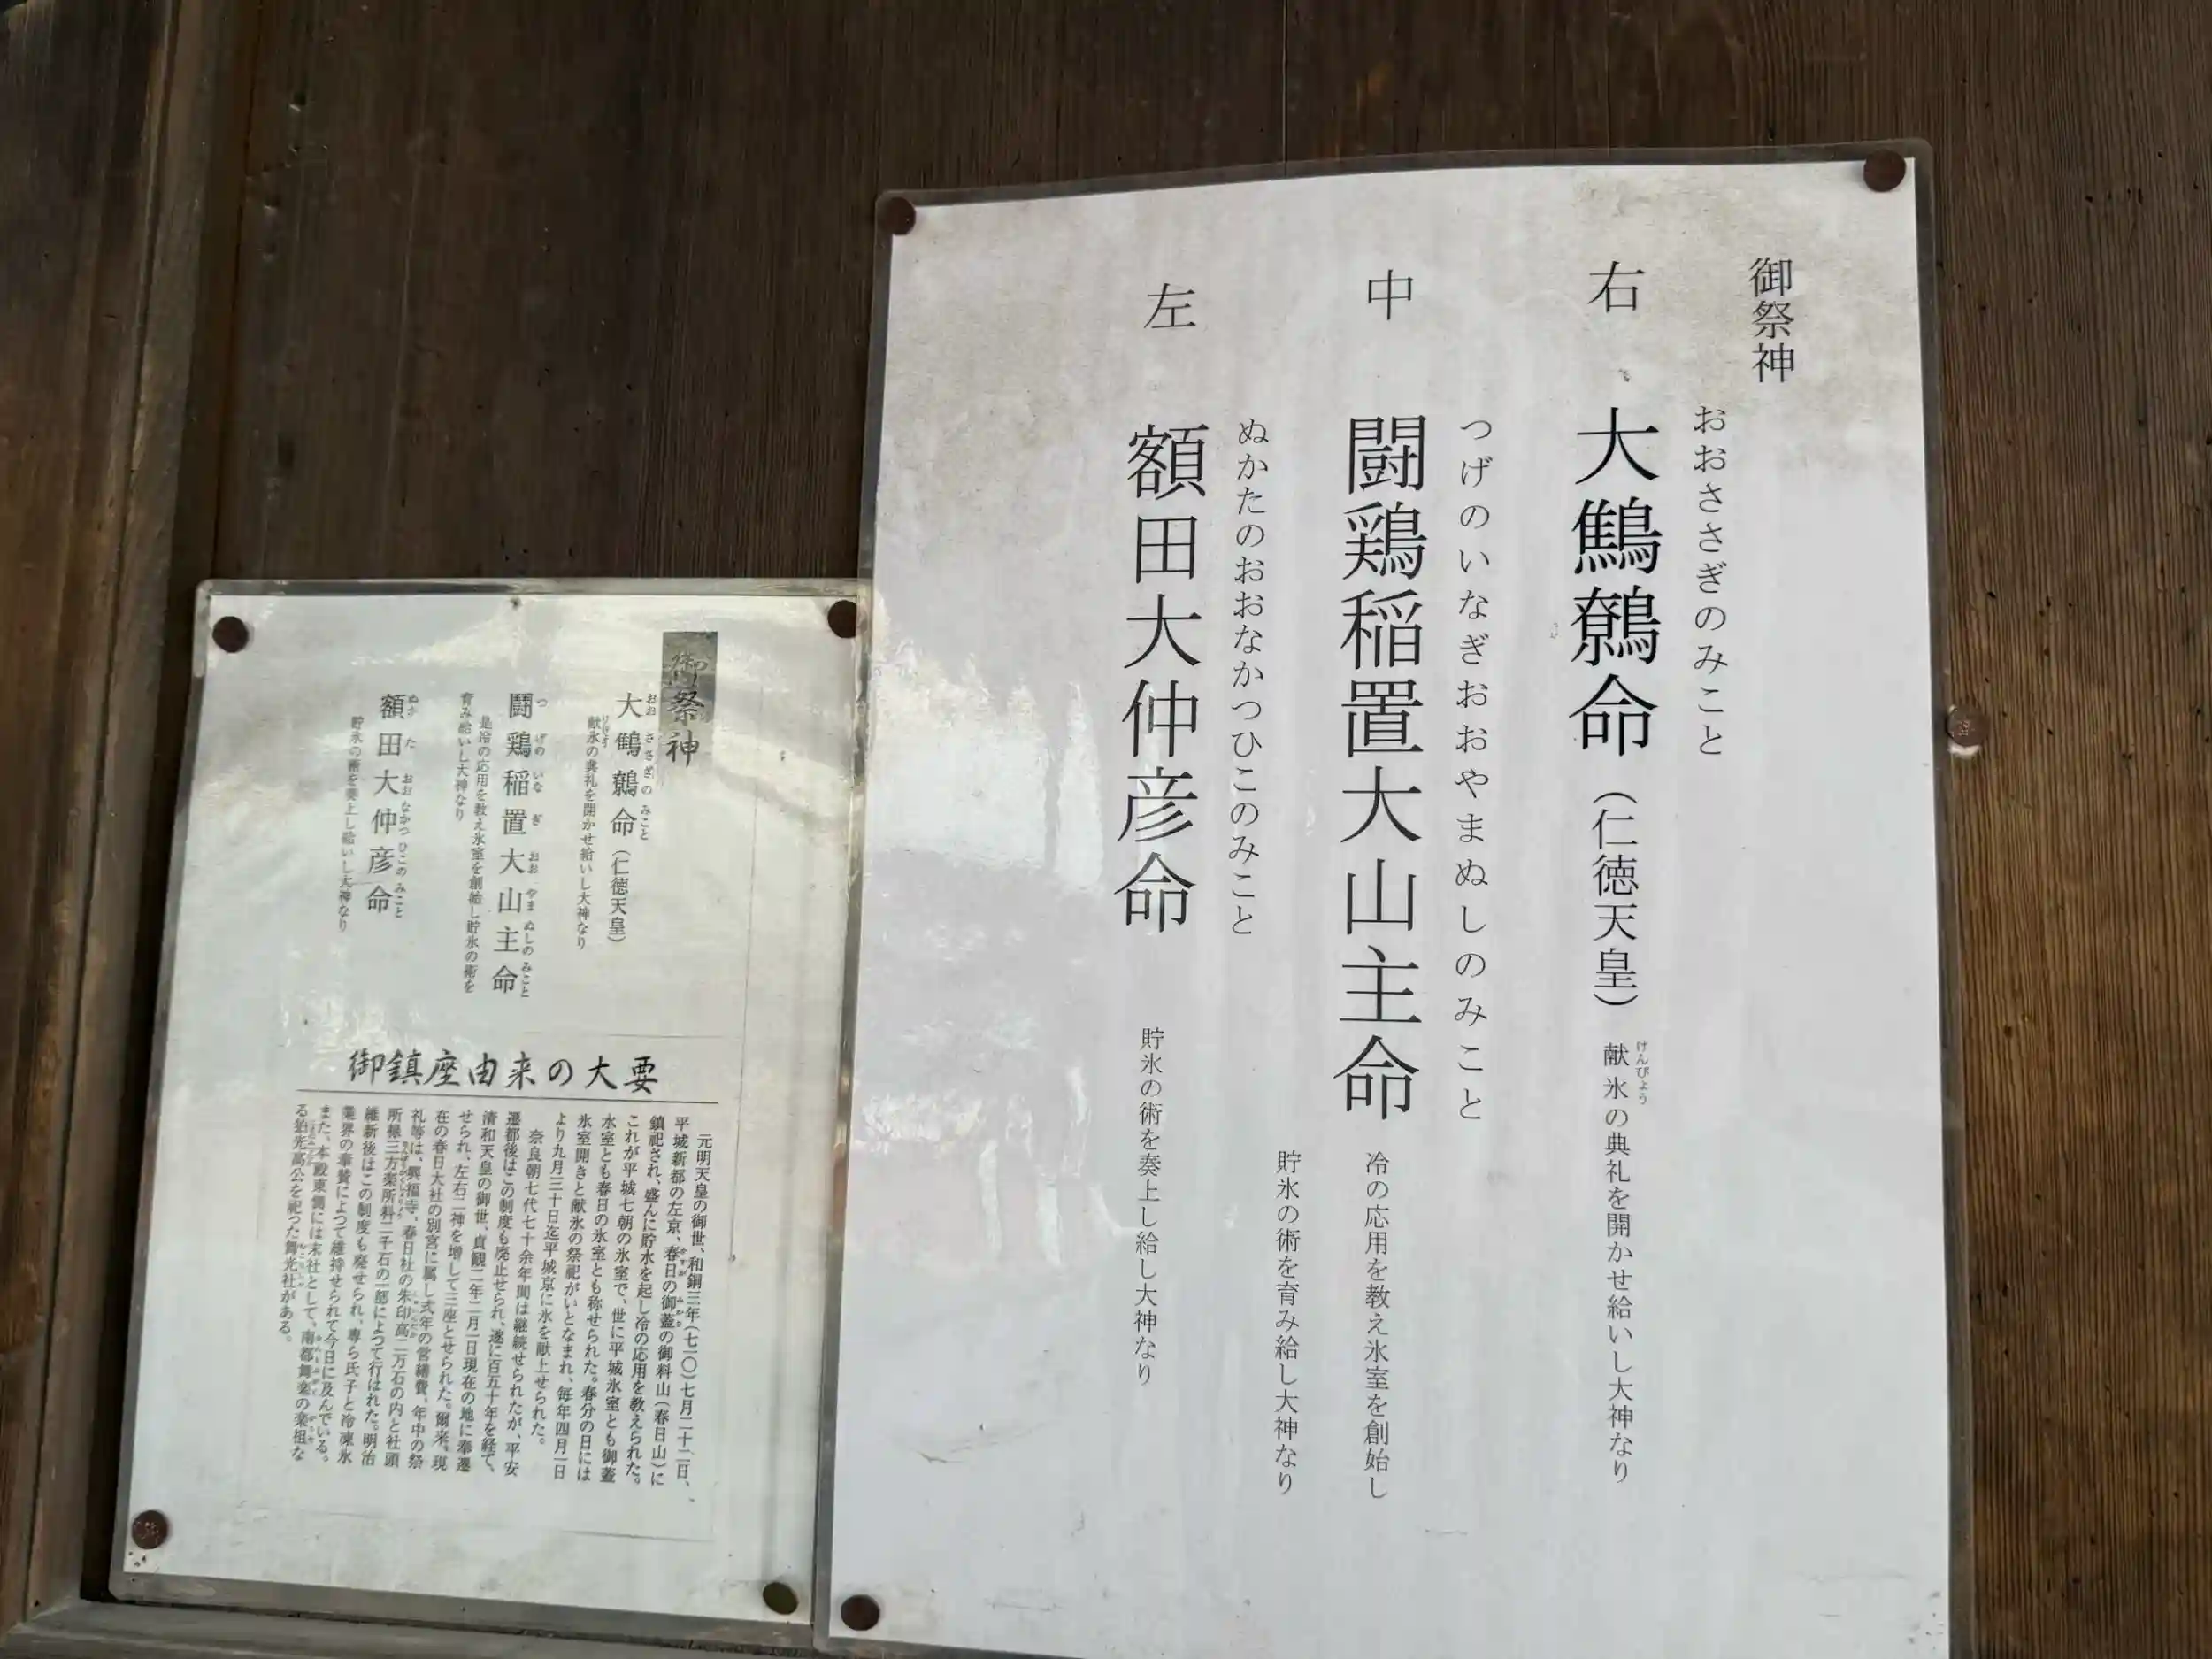 御祭神
おおささぎのみこと
右 大鷦鷯命（仁徳天皇） 献氷の典礼を開かせ給いし大神なり
けんぴょう
つげのいなぎおおやまぬしのみこと
中 闘鶏稲置大山主命 冷の応用を教え氷室を創始し
貯氷の術を育み給し大神なり
ぬかたのおおなかつひこのみこと
左 額田大仲彦命 貯氷の術を奏上し給し大神なり
御祭神
大鷦鷯命（仁徳天皇）
おお ささぎの みこと
献氷の典礼を開かせ給いし大神なり
闘鶏稲置大山主命
つ げの いな ぎ おお やま ぬしの みこと
是冷の応用を教え氷室を創始し貯氷の術を
育み給いし大神なり
額田大仲彦命
ぬか た おお なかつ ひこの みこと
貯氷の術を奏上し給いし大神なり
御鎮座由来の大要
元明天皇の御世、和銅三年（七一〇）七月二十二日、
平城新都の左京、春日の御蓋の御料山（春日山）に
鎮祀され、盛んに貯氷を起し冷の応用を教えられた。
これが平城七朝の氷室で、世に平城氷室とも御蓋
氷室とも春日の氷室とも称せられた。春分の日には
氷室開きと献氷の祭祀がいとなまれ、毎年四月一日
より九月三十日迄平城京に氷を献上せられた。
奈良朝七代七十余年間は継続せられたが、平安
遷都後はこの制度も廃止せられ、遂に百五十年を経て、
清和天皇の御世、貞観二年二月一日現在の地に奉遷
せられ、左右二神を増して三座とせられた。爾来、現
在の春日大社の別宮に属し式年の営繕費、年中の祭
礼等は、興福寺、春日社の朱印高二万石の内と社頭
所禄三方楽所料二千石の一部によつて行はれた。明治
維新後はこの制度も廃せられ、専ら氏子と冷凍氷
業界の奉賛によつて維持せられて今日に及んでいる。
また、本殿東側には末社として、南都舞楽の楽祖な
る狛光高公を祀つた舞光社がある。